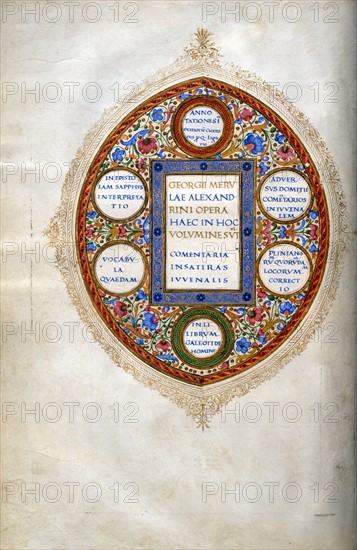 ANNO
TATIONES I
LIBRUM
GEORGII MERV
LAE ALEXAND
RINI OPERA
HAEC IN HOC
VOLUMINE SVT
COMENTARIA
IN SATIRAS
IVVENALIS
IN EPISTO
LAM SAPPHUS
INTERPRETA
TIO
ADVER
SVS DOMITII
COMETARIOS
IN IVVENA
LEM
VOCABV
LA
QVAEDAM
PLINIANO
RV QVORVDA
LOCORVM
CORRECT
IO
IN LI
LIBRVM
GALEOTI DE
HOMINE
PHOTO12